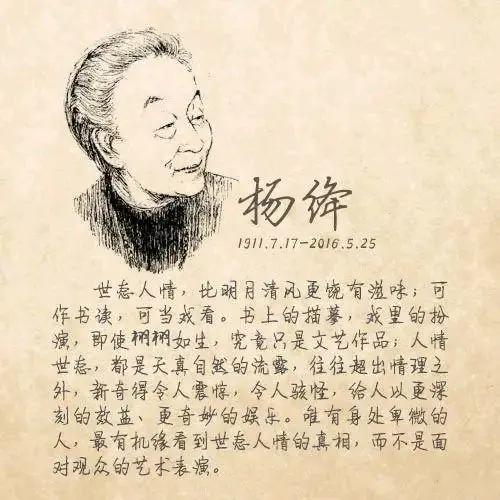 杨绛
1911.7.17-2016.5.25
世态人情，比明月清风更饶有滋味；可
作书读，可当戏看。书上的描摹，戏里的扮
演，即使栩栩如生，究竟只是文艺作品；人情
世态，都是天真自然的流露，往往超出情理之
外，新奇得令人震惊，令人骇怪，给人以更深
刻的效益、更奇妙的娱乐。唯有身处卑微的
人，最有机缘看到世态人情的真相，而不是面
对观众的艺术表演。